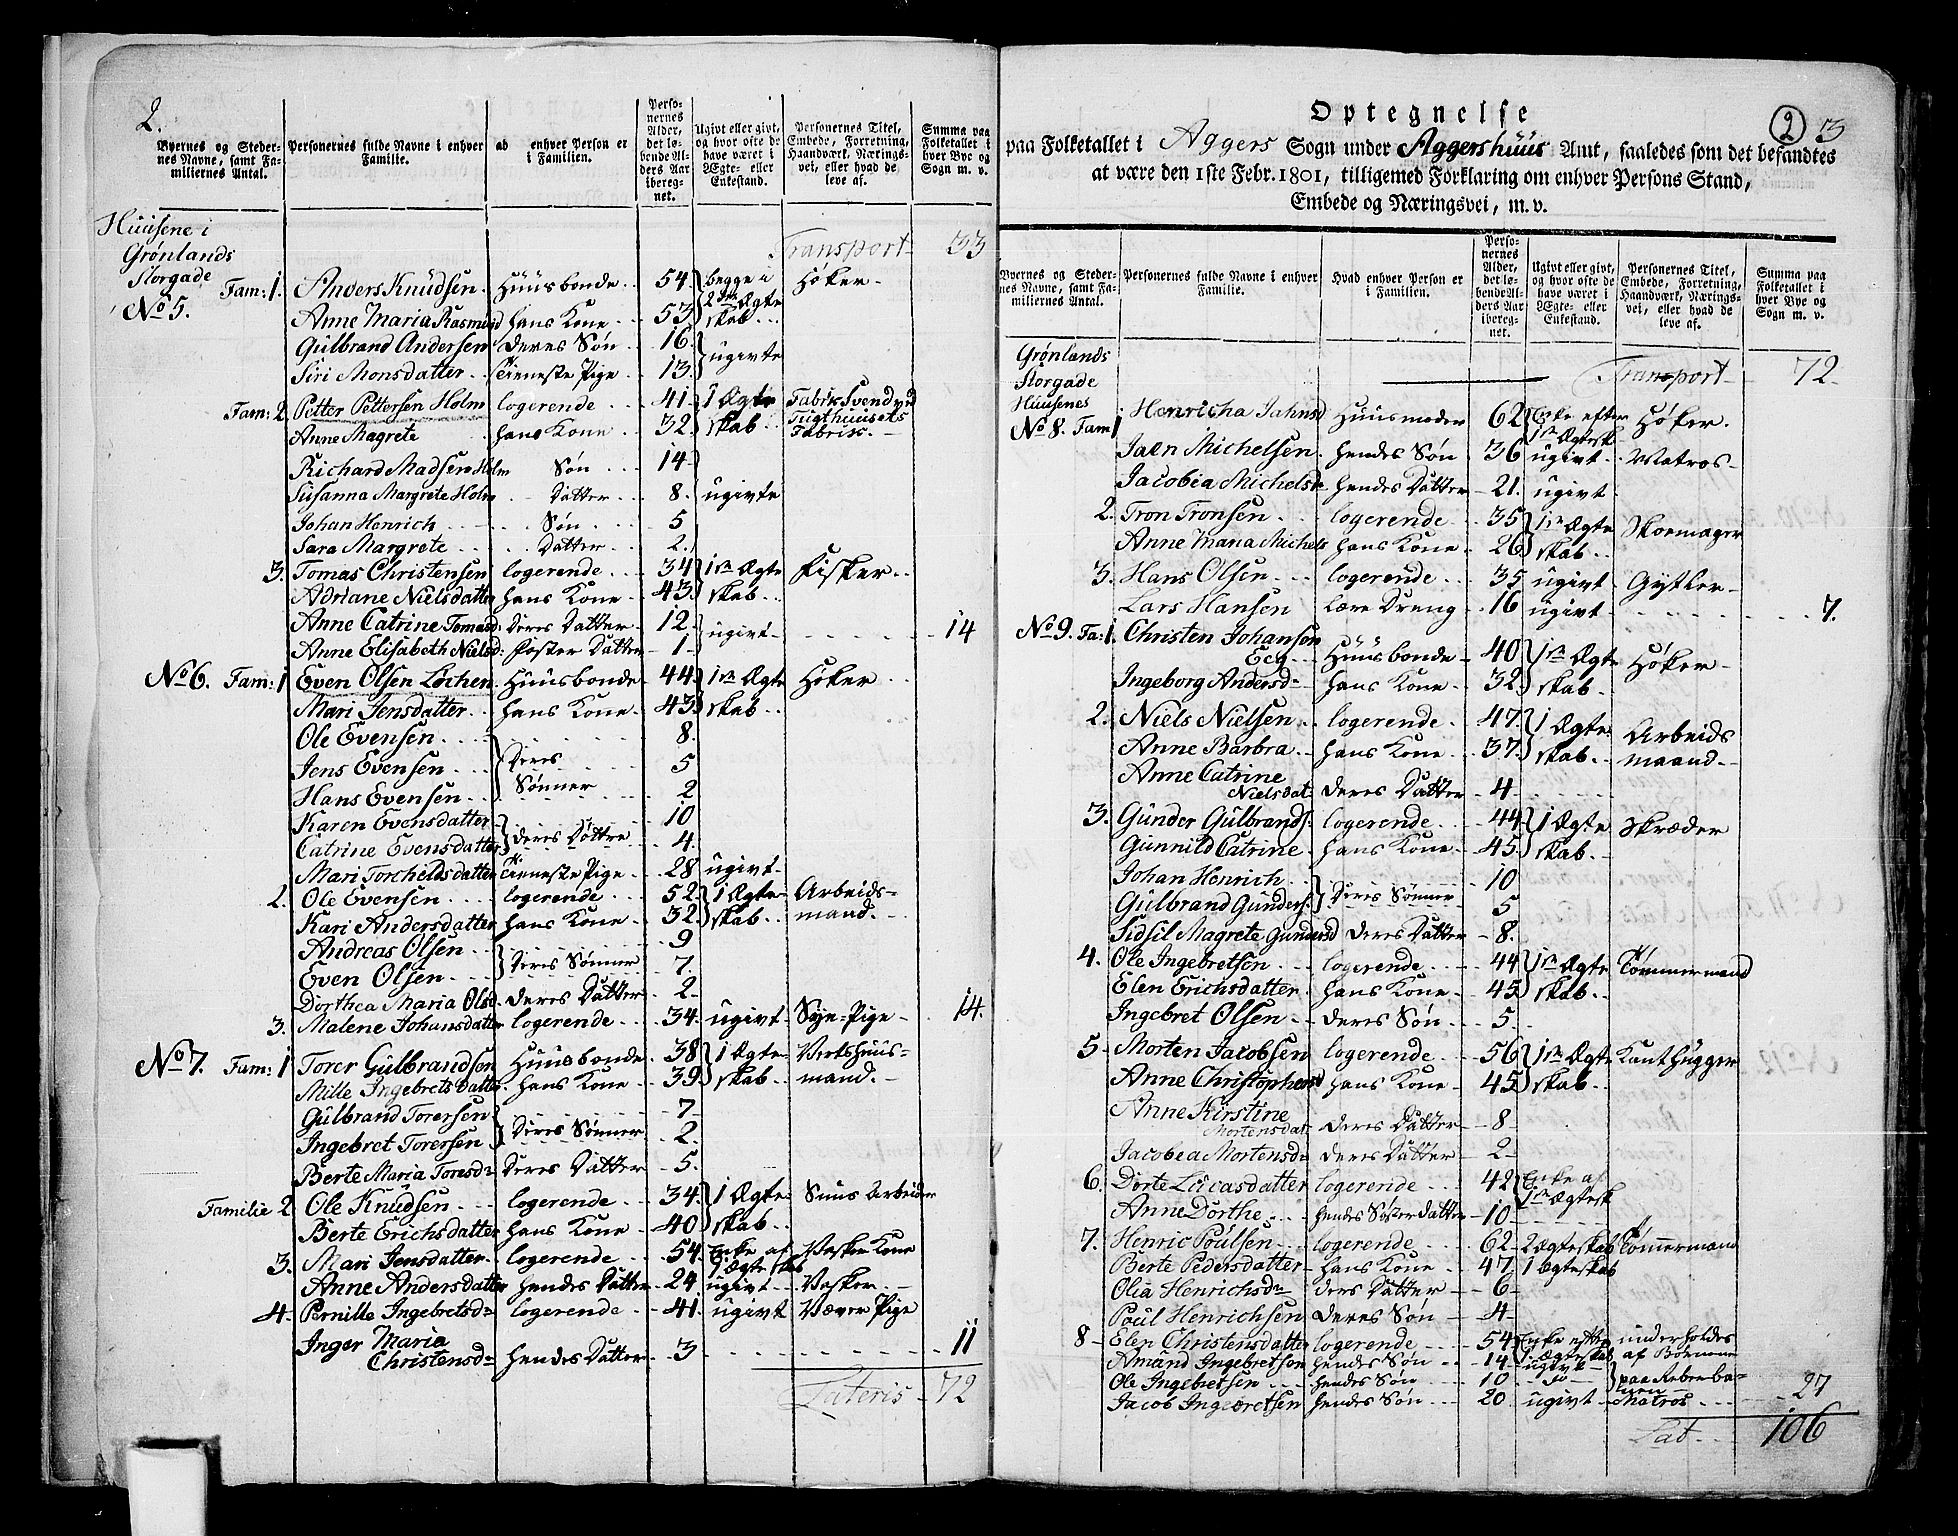 2.
Byernes og Steder-
nes Navne, samt Fa-
miliernes Antal.
Personernes fulde Navne i enhver
Familie.
ad enhver Person er
i Familien.
Perso-
nernes
Alder,
det lø-
bende Al-
ders Aar
ibereg-
net.
Ugivt eller givt,
og hvor ofte de
have været i
Ægte- eller
Enkestand.
Personernes Titel,
Embede, Forretning,
Haandværk, Nærings-
vei, eller hvad de
leve af.
Summa paa
Folketallet i
hver Bye og
Sogn m. v.
Huusene i
Grønlands
Storgade
Transport 33
No 5. Fam: 1. Anders Knudsen Huusbonde 54 begge i 2det Ægteskab Høker
Anne Maria Rasmusd hans Kone 53
Gulbrand Andersen deres Søn 16 ugivte
Siri Monsdatter Tieneste Pige 13
Fam: 2 Petter Pettersen Holm logerende 41 1 Ægteskab Fabrik Svend ved Tugthuusets Fabrik
Anne Magrete hans Kone 32
Richard Madsen Holm Søn 14
Susanna Margrete Holm Datter 8 ugivte
Johan Henrich Søn 5
Sara Margrete Datter 2
3. Tomas Christensen logerende 34 1ste Ægteskab Fisker
Adriane Nielsdatter hans Kone 43
Anne Catrine Tomasd: Deres Datter 12 ugivt
Anne Elisabeth Nielsd: Foster Datter 1 14
No 6. Fam: 1 Even Olsen Løchen Huusbonde 44 1ste Ægteskab Høker
Mari Jensdatter hans Kone 43
Ole Evensen 8
Jens Evensen Deres Sønner 5
Hans Evensen 2
Karen Evensdatter 10
Catrine Evensdatter deres Døttre 4
Mari Torchelsdatter Tieneste Pige 28 ugivt
2. Ole Evensen logerende 52 1 Ægteskab Arbeidsmand
Kari Andersdatter hans Kone 32
Andreas Olsen Deres Sønner 9
Even Olsen 7
Dorthea Maria Olsd deres Datter 2
3. Malene Johansdatter logerende 34 ugivt Sye-Pige 14.
No 7. Fam: 1 Torer Gulbrandsen Huusbonde 38 1 Ægteskab Vertshuusmand
Mille Ingebretsdatter hans Kone 39
Gulbrand Torersen 7
Ingebret Torersen Deres Sønner 2
Berte Maria Toresd Deres Datter 5
Familie 2 Ole Knudsen logerende 34 1 Ægteskab Arbeider
Berte Erichsdatter hans Kone 40
3. Mari Jensdatter logerende 54 Enke af 1 Ægteskab Vasker Kone
Anne Andersdatter hendes Datter 24 ugivt Vasker
4. Pernille Ingebretsd logerende 41 ugivt Væver Pige
Inger Maria
Christensd hendes Datter 3 11
Lateris 72
2 3
Optegnelse
paa Folketallet i Aggers Sogn under Aggershuus Amt, saaledes som det befandtes
at være den 1ste Febr. 1801, tilligemed Forklaring om enhver Persons Stand,
Embede og Næringsvei, m. v.
Byernes og Steder-
nes Navne, samt Fa-
miliernes Antal.
Personernes fulde Navne i enhver
Familie.
Hvad enhver Person er
i Familien.
Perso-
nernes
Alder,
det lø-
bende Al-
ders Aar
ibereg-
net.
Ugivt eller givt,
og hvor ofte de
have været i
Ægte- eller
Enkestand.
Personernes Titel,
Embede, Forretning,
Haandværk, Nærings-
vei, eller hvad de
leve af.
Summa paa
Folketallet i
hver Bye og
Sogn m. v.
Grønlands
Storgade
Huusenes
Transport 72
No 8. Fam 1 Henricha Jahnsd Huusmoder 62 Enke efter 1ste Ægtesk Høker
Jaen Michelsen hendes Søn 36 ugivt Matros
Jacobia Michelsd hendes Datter 21 ugivt
2. Tron Tronsen logerende 35 1ste Ægteskab Skoemager
Anne Maria Michels hans Kone 26
3. Hans Olsen logerende 35 ugivt Gytler
Lars Hansen lære Dreng 16 ugivt 7.
No 9. Fa: 1. Christen Johansen
Eeg Huusbonde 40 1ste Ægteskab Høker
Ingeborg Andersd hans Kone 32
2. Niels Nielsen logerende 47 1 Ægteskab Arbeidsmaand
Anne Barbra hans Kone 37
Anne Catrine
Nielsdat: deres Datter 4
3. Gunder Gulbrands: logerende 44 1 Ægteskab Skræder
Gunnild Catrine hans Kone 45
Johan Henrich 10
Gulbrand Gunders: Deres Sønner 5
Sidsil Magrete Gundersd deres Datter 8
4. Ole Ingebretsen logerende 44 1ste Ægteskab Tømmermand
Elen Erichsdatter hans Kone 45
Ingebret Olsen deres Søn 5
5 Morten Jacobsen logerende 56 1ste Ægteskab Kanthugger
Anne Christophersd hans Kone 45
Anne Kirstine
Mortensdat: deres Datter 8
Jacobea Mortensd deres Datter 2
6. Dorte Lucasdatter logerende 42 Enke af 1ste Ægtesk
Anne Dorthe hendes Søster datter 10
7. Henric Poulsen logerende 62 2 Ægteskab Tømmermand
Berte Pedersdatter hans Kone 47 1 Ægteskab
Olia Henrichsd deres Datter 6
Poul Henrichsen deres Søn 4
8 Elen Christensdatter logerende 54 Enke efter 1. Ægteskab underholdes af Børnene
Amund Ingebretsen hendes Søn 14 ugivt
Ole Ingebretsen hendes Søn 10 do paa Reberbanen
Jacob Ingebretsen hendes Søn 20 ugivt Matros 27
Lat 106